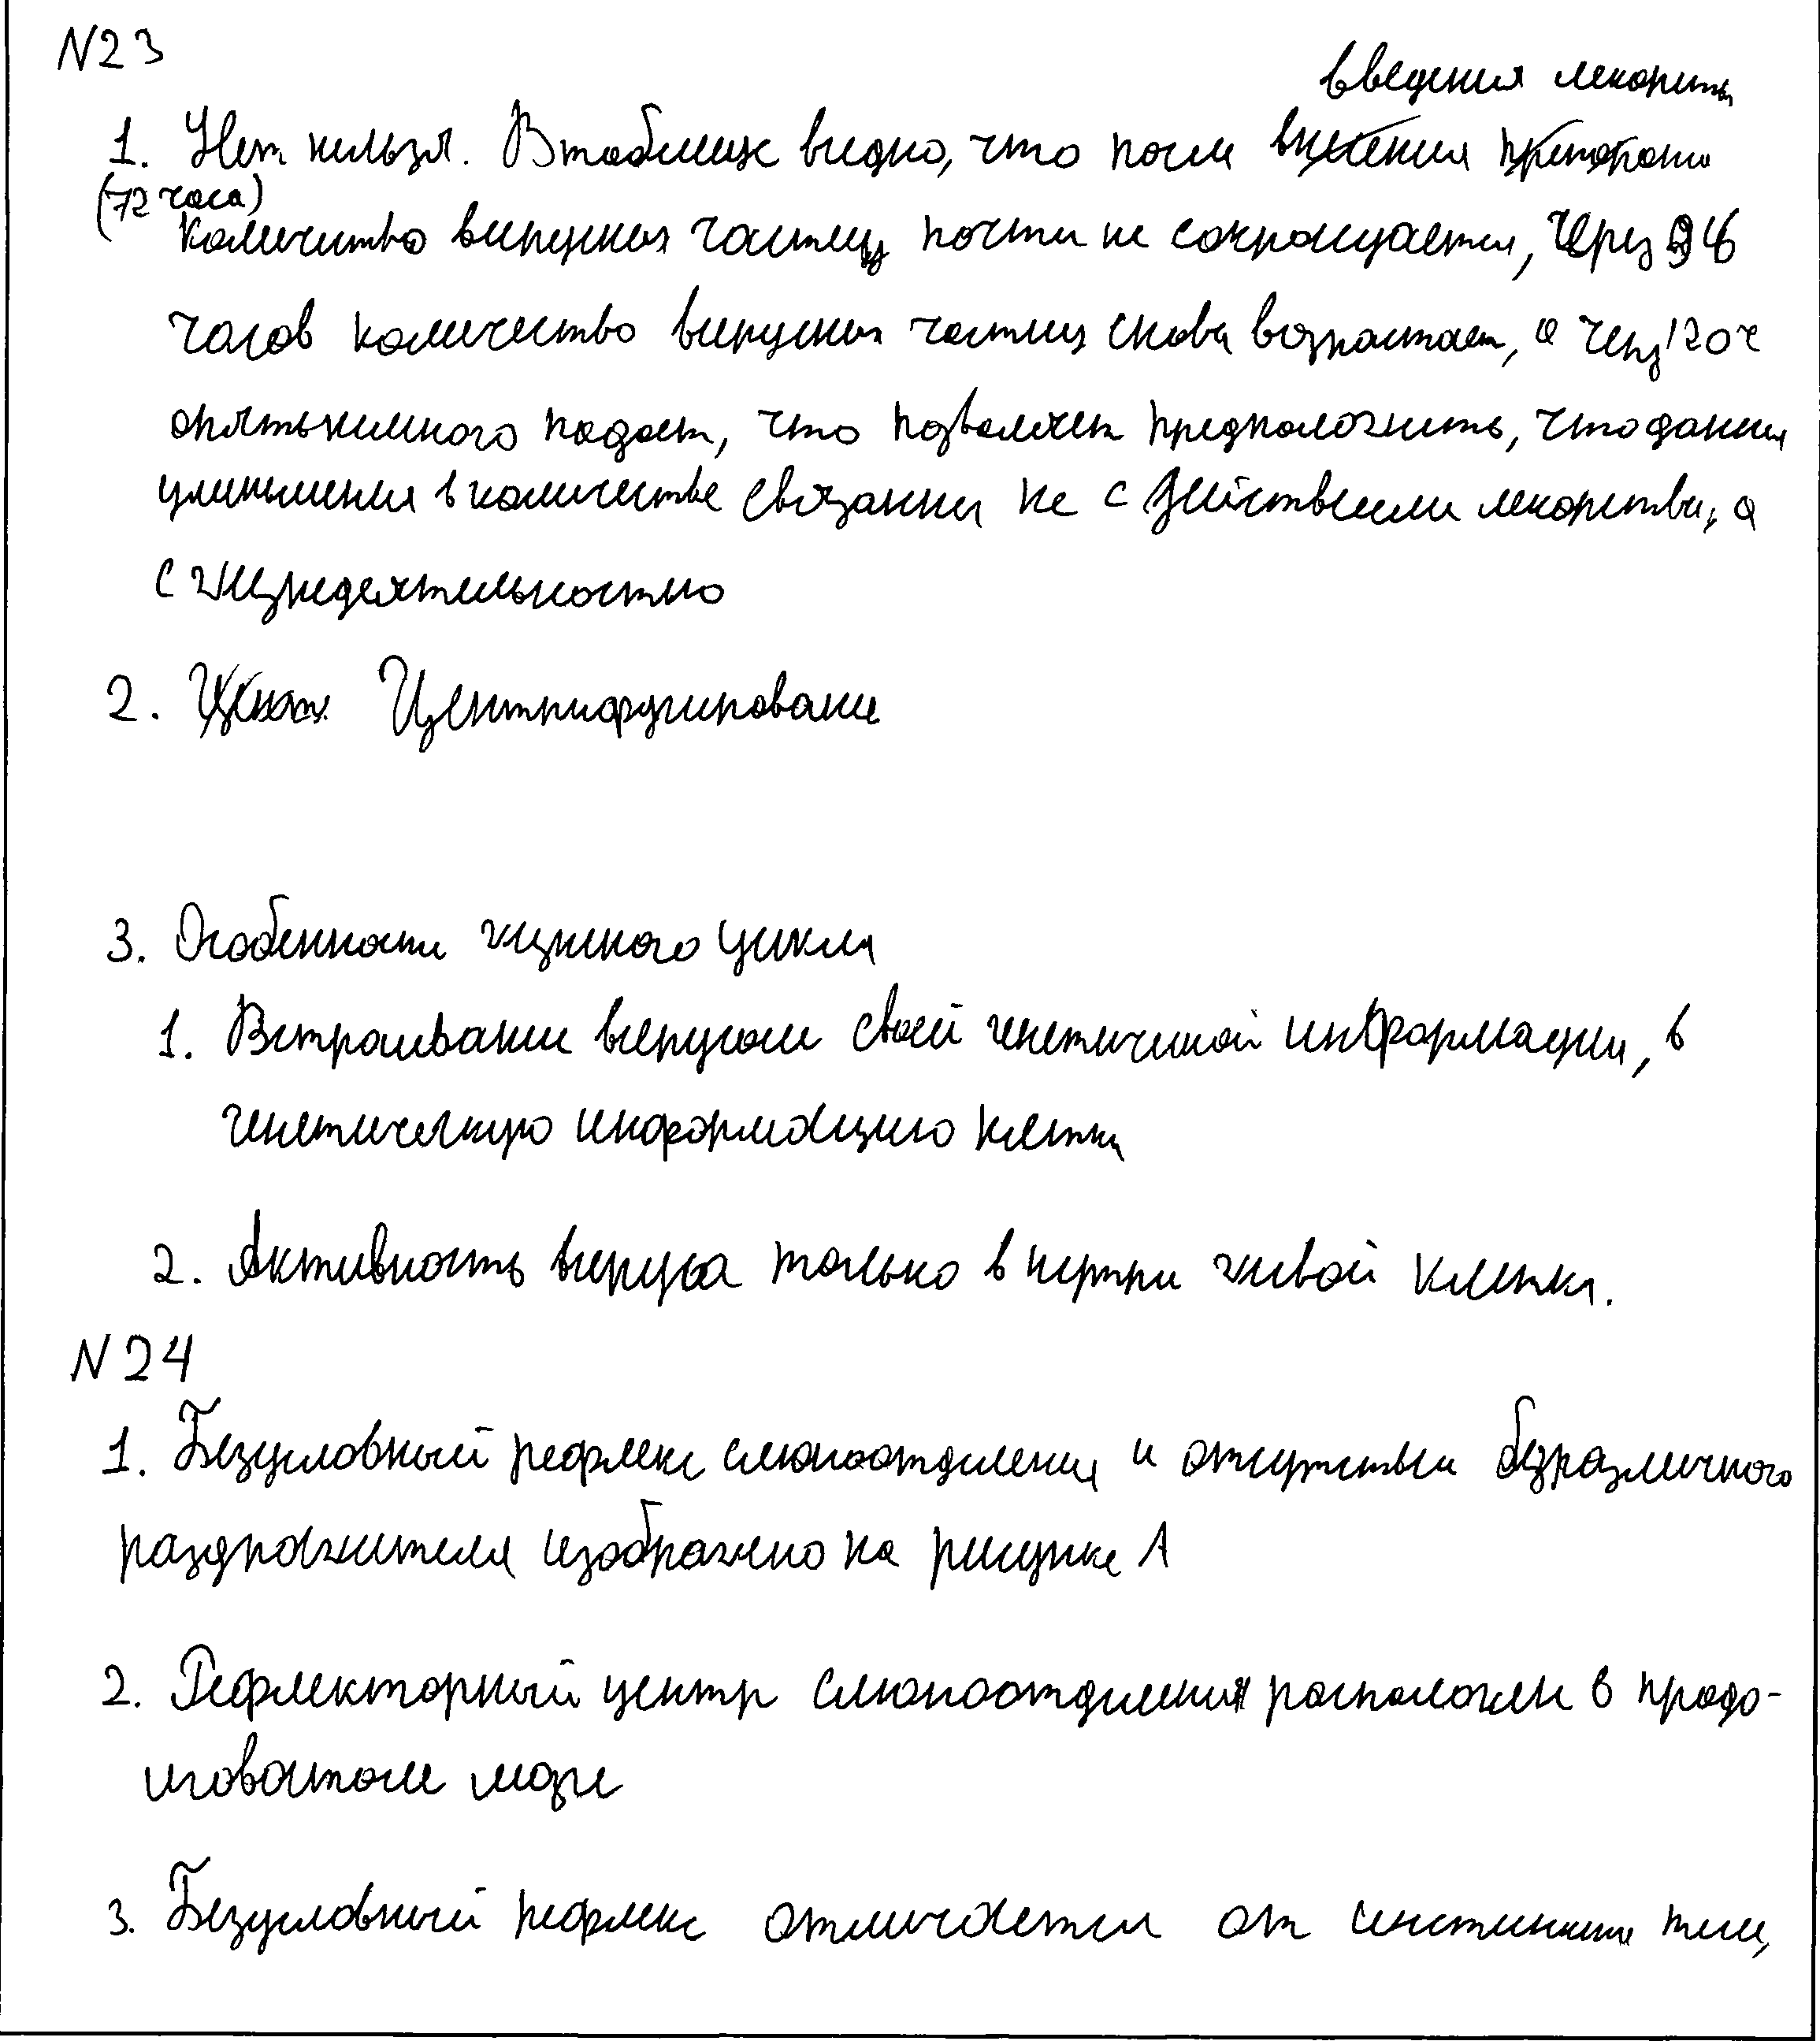 N23
введения лекарства
1. Нет нельзя. В таблице видно, что после
(72 часа)
количество вирусных частиц почти не сокращается, через 96
часов количество вирусных частиц снова возрастает, а через 120ч
опять немного падает, что позволяет предположить, что данные
уменьшения в количестве связанны не с действием лекарства, а
с жизнедеятельностью
2. Центрифугирование
3. Особенности жизненного цикла
1. Встраивание вирусом своей генетической информации, в
генетическую информацию клетки
2. Активность вируса только внутри живой клетки.
N24
1. Безусловный рефлекс слюноотделения и отсутствии безразличного
раздражителя изображено на рисунке А
2. Рефлекторный центр слюноотделения расположен в продо-
лговатом мозге
3. Безусловный рефлекс отличается от инстинкта тем,